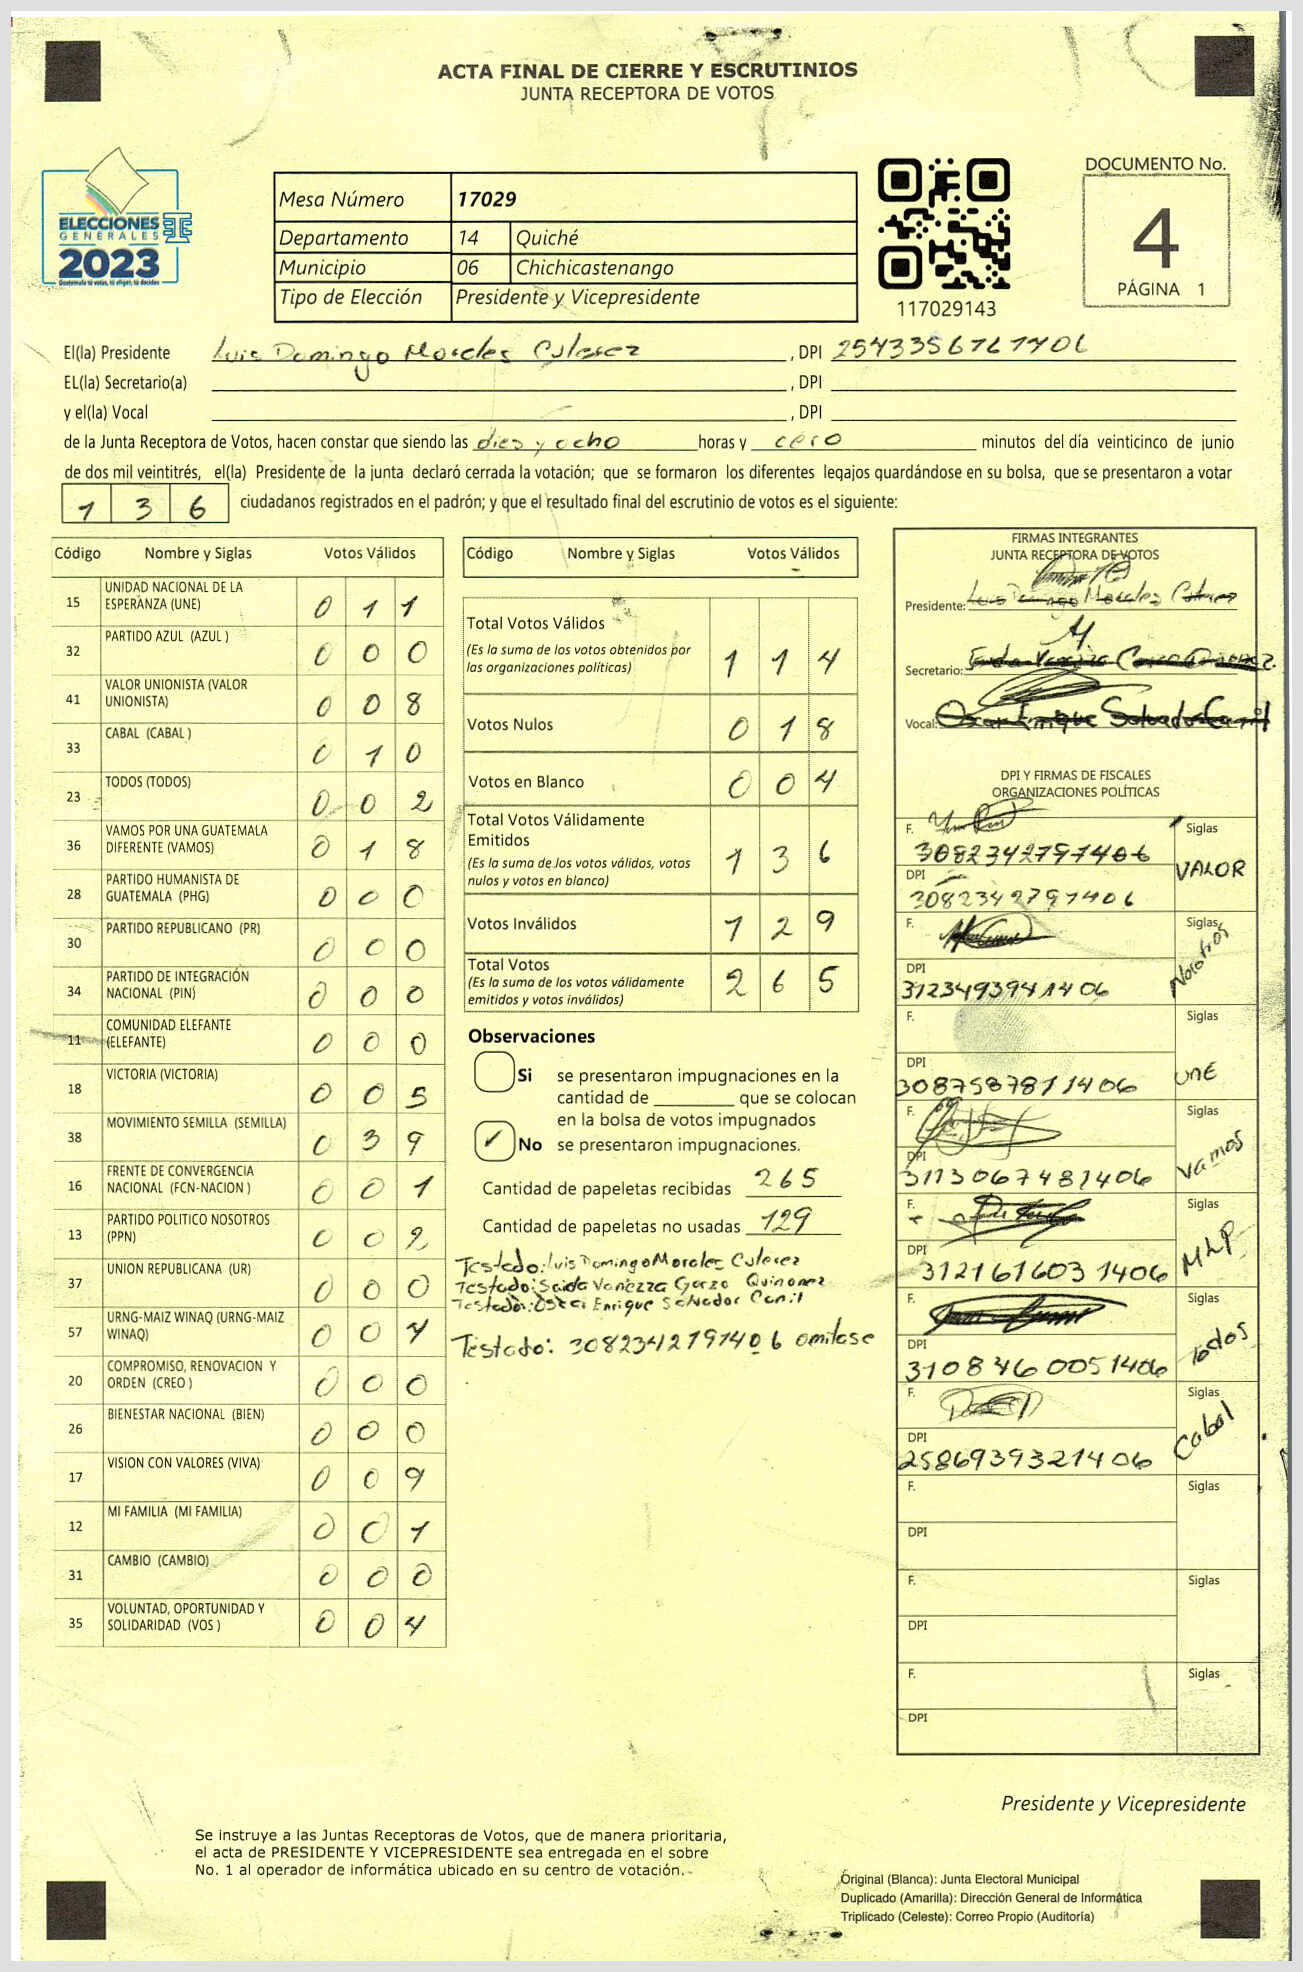 ACTA FINAL DE CIERRE Y ESCRUTINIOS
JUNTA RECEPTORA DE VOTOS
ELECCIONES
GENERALES
2023
Guatemala tú votas, tú eliges, tú decides
Mesa Número 17029
Departamento 14 Quiché
Municipio 06 Chichicastenango
Tipo de Elección Presidente y Vicepresidente
117029143
DOCUMENTO No.
4
PÁGINA 1
El(la) Presidente Luis Domingo Morales , DPI 2543356761406
EL(la) Secretario(a) , DPI
y el(la) Vocal , DPI
de la Junta Receptora de Votos, hacen constar que siendo las dies y ocho horas y cero minutos del día veinticinco de junio
de dos mil veintitrés, el(la) Presidente de la junta declaró cerrada la votación; que se formaron los diferentes legajos guardándose en su bolsa, que se presentaron a votar
1 3 6 ciudadanos registrados en el padrón; y que el resultado final del escrutinio de votos es el siguiente:
Código Nombre y Siglas Votos Válidos
15 UNIDAD NACIONAL DE LA ESPERANZA (UNE) 0 1 1
32 PARTIDO AZUL (AZUL ) 0 0 0
41 VALOR UNIONISTA (VALOR UNIONISTA) 0 0 8
33 CABAL (CABAL ) 0 1 0
23 TODOS (TODOS) 0 0 2
36 VAMOS POR UNA GUATEMALA DIFERENTE (VAMOS) 0 1 8
28 PARTIDO HUMANISTA DE GUATEMALA (PHG) 0 0 0
30 PARTIDO REPUBLICANO (PR) 0 0 0
34 PARTIDO DE INTEGRACIÓN NACIONAL (PIN) 0 0 0
11 COMUNIDAD ELEFANTE (ELEFANTE) 0 0 0
18 VICTORIA (VICTORIA) 0 0 5
38 MOVIMIENTO SEMILLA (SEMILLA) 0 3 9
16 FRENTE DE CONVERGENCIA NACIONAL (FCN-NACION ) 0 0 1
13 PARTIDO POLITICO NOSOTROS (PPN) 0 0 2
37 UNION REPUBLICANA (UR) 0 0 0
57 URNG-MAIZ WINAQ (URNG-MAIZ WINAQ) 0 0 4
20 COMPROMISO, RENOVACION Y ORDEN (CREO ) 0 0 0
26 BIENESTAR NACIONAL (BIEN) 0 0 0
17 VISION CON VALORES (VIVA) 0 0 9
12 MI FAMILIA (MI FAMILIA) 0 0 1
31 CAMBIO (CAMBIO) 0 0 0
35 VOLUNTAD, OPORTUNIDAD Y SOLIDARIDAD (VOS ) 0 0 4
Código Nombre y Siglas Votos Válidos
Total Votos Válidos 1 1 4
(Es la suma de los votos obtenidos por
las organizaciones políticas)
Votos Nulos 0 1 8
Votos en Blanco 0 0 4
Total Votos Válidamente
Emitidos 1 3 6
(Es la suma de los votos válidos, votos
nulos y votos en blanco)
Votos Inválidos 1 2 9
Total Votos 2 6 5
(Es la suma de los votos válidamente
emitidos y votos inválidos)
Observaciones
Si se presentaron impugnaciones en la
cantidad de ________ que se colocan
en la bolsa de votos impugnados
✓ No se presentaron impugnaciones.
Cantidad de papeletas recibidas 265
Cantidad de papeletas no usadas 129
Testado: Luis Domingo Morales
Testado:
Testado: Enrique Salvador
Testado: 3082342797406 omitase
FIRMAS INTEGRANTES
JUNTA RECEPTORA DE VOTOS
Presidente: Luis Domingo Morales
Secretario:
Vocal: Oscar Enrique Salvador
DPI Y FIRMAS DE FISCALES
ORGANIZACIONES POLÍTICAS
F. 3082342797406 Siglas VALOR
DPI 3082342791406
F. Siglas Nosotros
DPI 3123493941406
F. Siglas UNE
DPI 3087587811406
F. Siglas Vamos
DPI 3113067481406
F. Siglas MLP
DPI 3121616031406
F. Siglas Todos
DPI 3108460051406
F. Siglas Cabal
DPI 2586939321406
F. Siglas
DPI
F. Siglas
DPI
F. Siglas
DPI
Presidente y Vicepresidente
Se instruye a las Juntas Receptoras de Votos, que de manera prioritaria,
el acta de PRESIDENTE Y VICEPRESIDENTE sea entregada en el sobre
No. 1 al operador de informática ubicado en su centro de votación.
Original (Blanca): Junta Electoral Municipal
Duplicado (Amarilla): Dirección General de Informática
Triplicado (Celeste): Correo Propio (Auditoría)